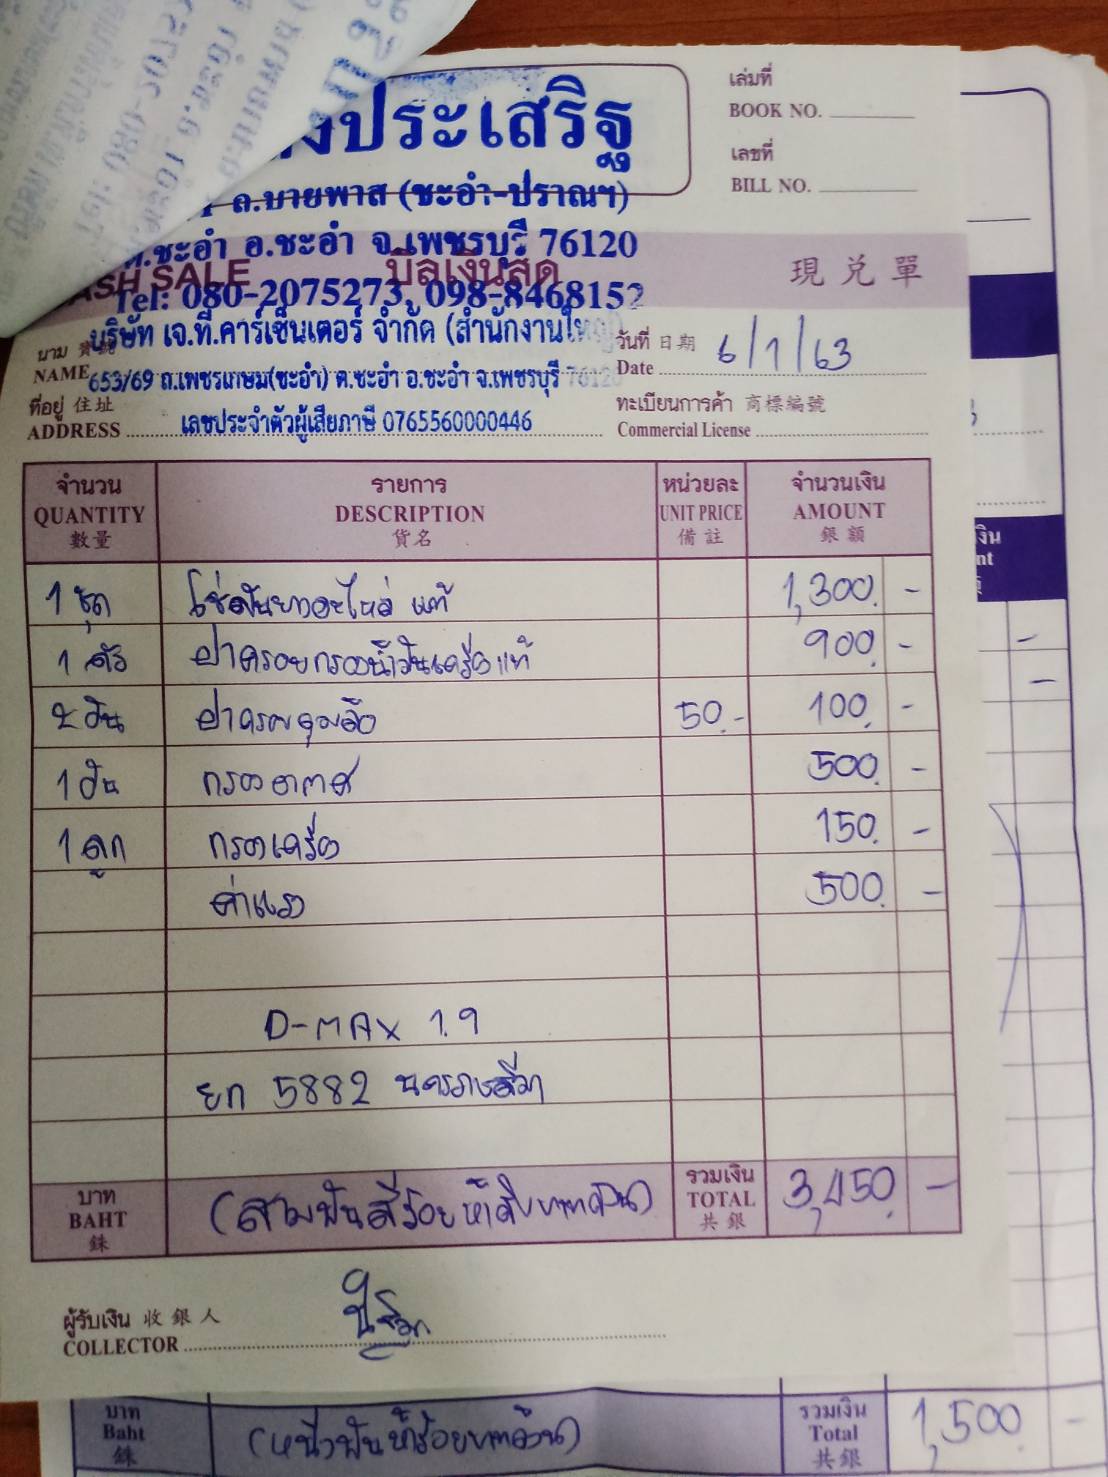 งประเสริฐ
ถ.บายพาส (ชะอำ-ปราณฯ)
ต.ชะอำ อ.ชะอำ จ.เพชรบุรี 76120
Tel: 080-2075273, 098-8468152
เล่มที่
BOOK NO.
เลขที่
BILL NO.
CASH SALE บิลเงินสด 現兌單
บริษัท เจ.ที.คาร์เซ็นเตอร์ จำกัด (สำนักงานใหญ่)
นาม
NAME 653/69 ถ.เพชรเกษม(ชะอำ) ต.ชะอำ อ.ชะอำ จ.เพชรบุรี 76120
วันที่ 日期 6/1/63
Date
ที่อยู่ 住址
ADDRESS เลขประจำตัวผู้เสียภาษี 0765560000446
ทะเบียนการค้า 商標編號
Commercial License
จำนวน รายการ หน่วยละ จำนวนเงิน
QUANTITY DESCRIPTION UNIT PRICE AMOUNT
數量 貨名 備註 銀額
1 ชุด แท้ 1,300.-
1 ตัว ฝาครอบกรองน้ำมันเครื่องแท้ 900.-
2 อัน ฝาครอบ 50.- 100.-
1 อัน กรองอากาศ 500.-
1 ลูก กรองเครื่อง 150.-
ค่าแรง 500.-
D-MAX 1.9
ยก 5882 นครราชสีมา
บาท
BAHT
銖
(สามพันสี่ร้อยห้าสิบบาทถ้วน)
รวมเงิน
TOTAL
共銀
3,450.-
ผู้รับเงิน 收銀人
COLLECTOR
บาท
Baht
銖
(หนึ่งพันห้าร้อยบาทถ้วน)
รวมเงิน
Total
共銀
1,500.-